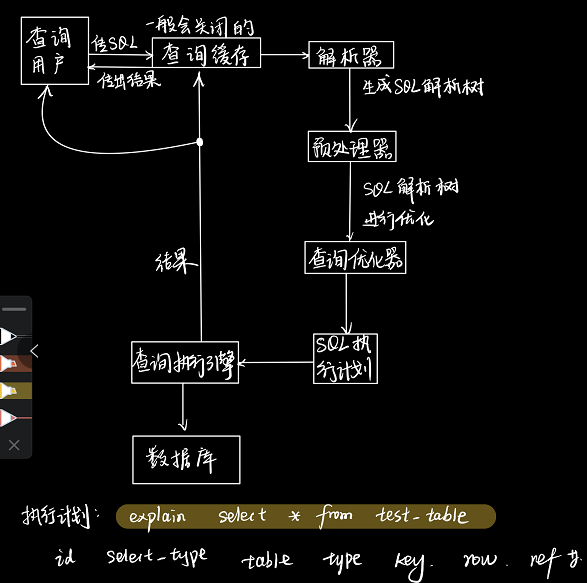 一般会关闭的
查询
用户
传SQL
传出结果
查询缓存
解析器
生成SQL解析树
预处理器
SQL解析树
进行优化
查询优化器
结果
SQL执
行计划
查询执行引擎
数据库
执行计划: explain select * from test_table
id select_type table type key. row. ref 等.